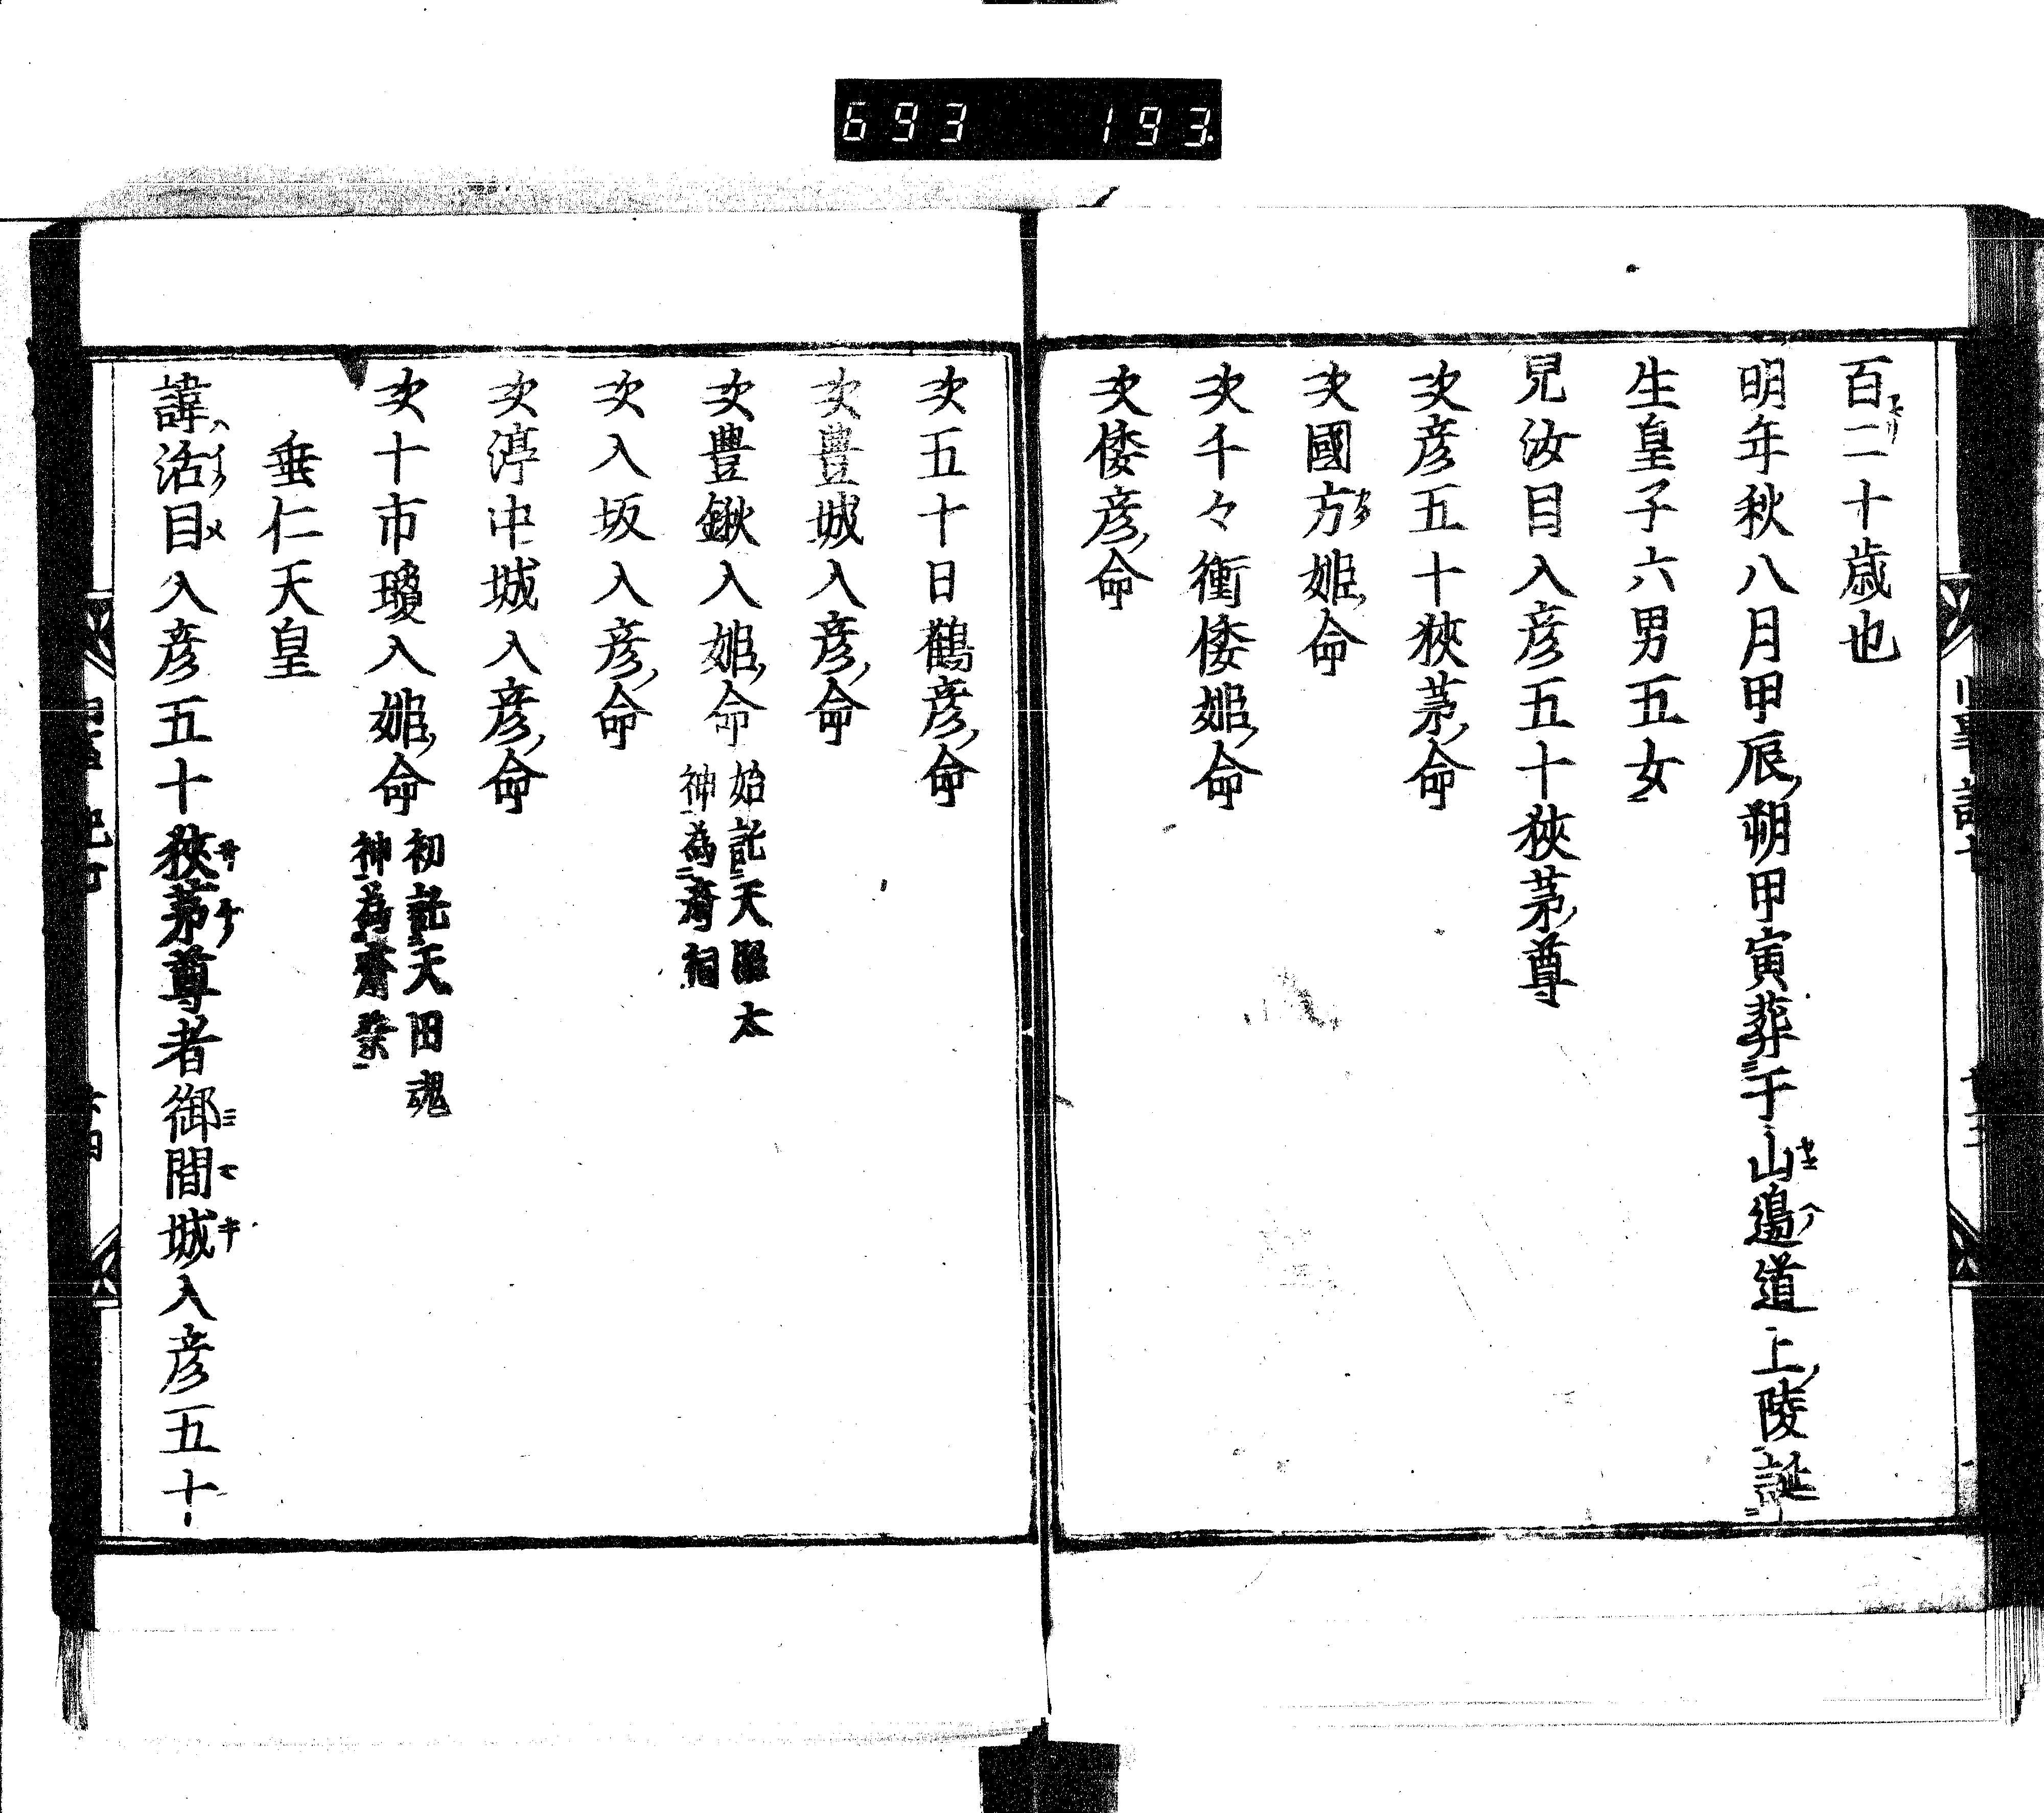 693 193
百二十歳也
明年秋八月甲辰朔甲寅葬于山邉道上陵誕
生皇子六男五女
兒汝目入彦五十狹茅尊
次彦五十狹茅命
次國方姫命
次千々衝倭姫命
次倭彦命
次五十日鶴彦命
次豊城入彦命
次豊鍬入姫命 始託天照太
神為齋祠
次入坂入彦命
次渟中城入彦命
次十市瓊入姫命 初託天田魂
神為齋祭
垂仁天皇
諱活目入彦五十狹茅尊者御間城入彦五十